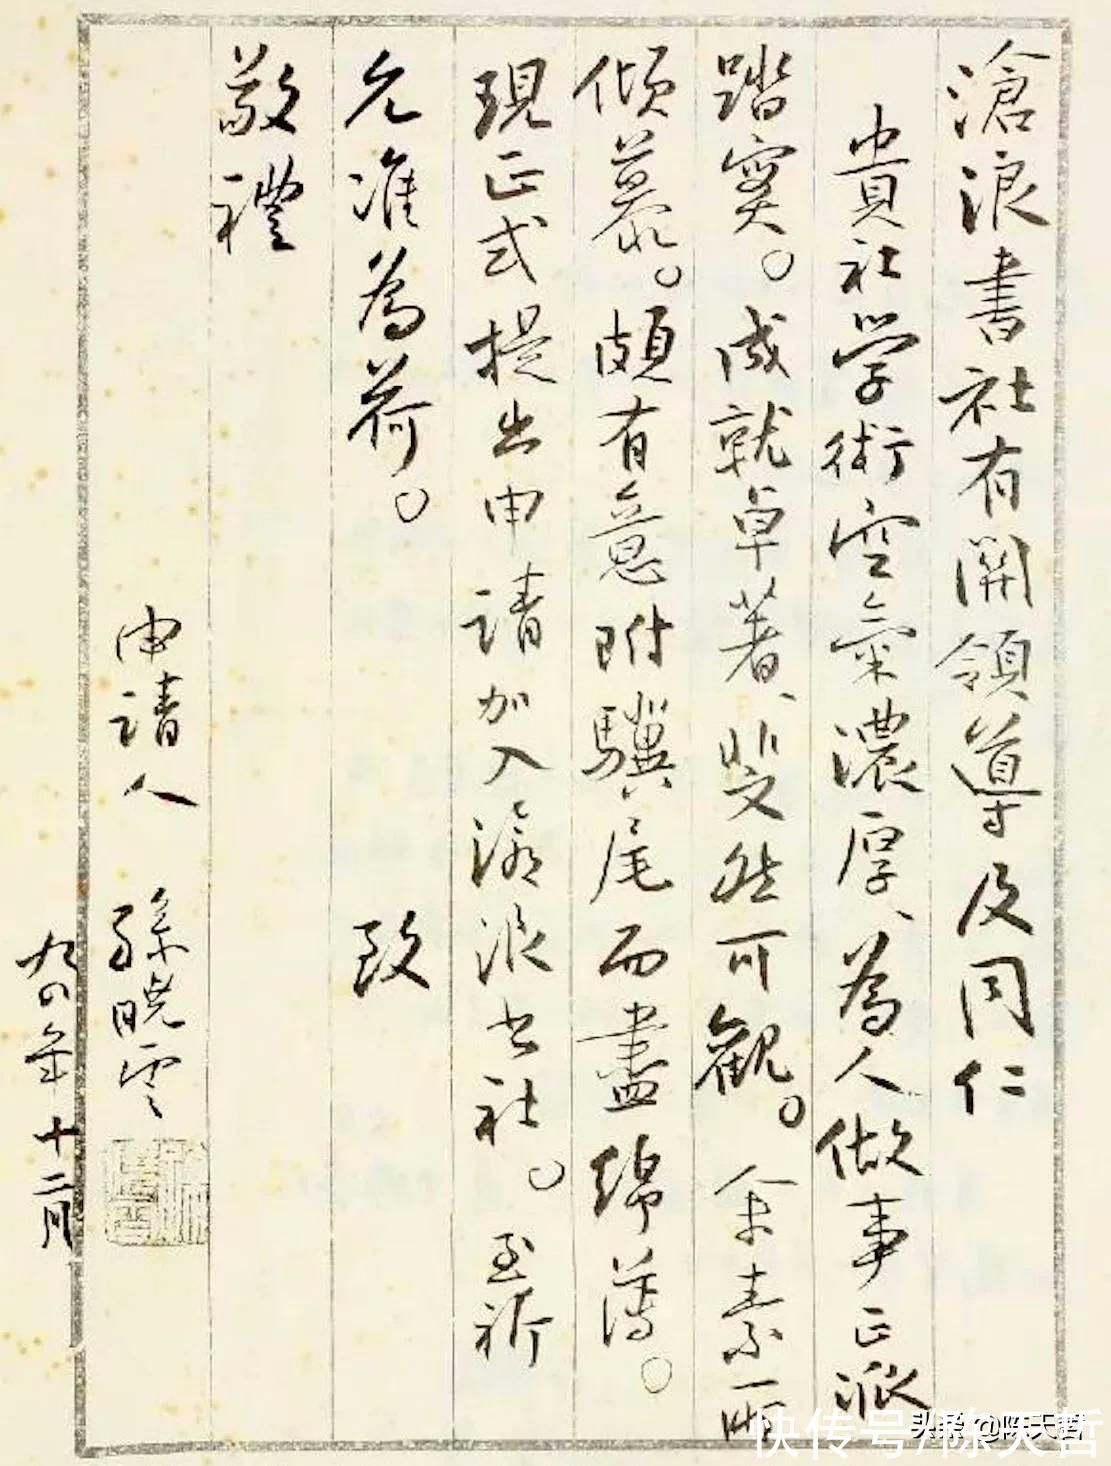 滄浪書社有關領導及同仁
貴社学術空氣濃厚、為人做事正派
踏实。成就卓著、斐然可觀。余素所
傾慕。頗有意附驥尾而盡綿薄。
現正式提出申请加入滄浪书社。至祈
允准為荷。 致
敬禮
申请人 孫曉雲
九四年十二月
快传号/陈天哲
头条 @陈天哲